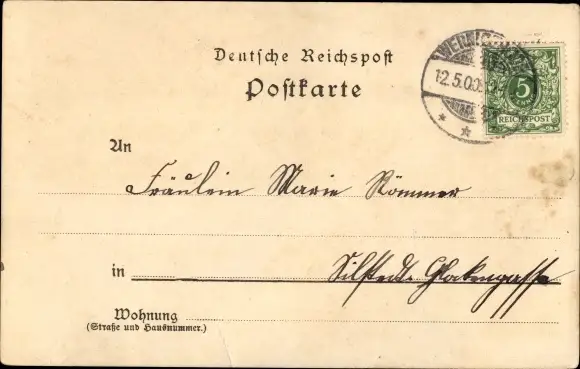 Deutsche Reichspost
Postkarte
WERNIG
12.5.00
5
REICHSPOST
An
Fräulein Marie Römmer
in Silstedt Glockengasse
Wohnung
(Straße und Hausnummer.)